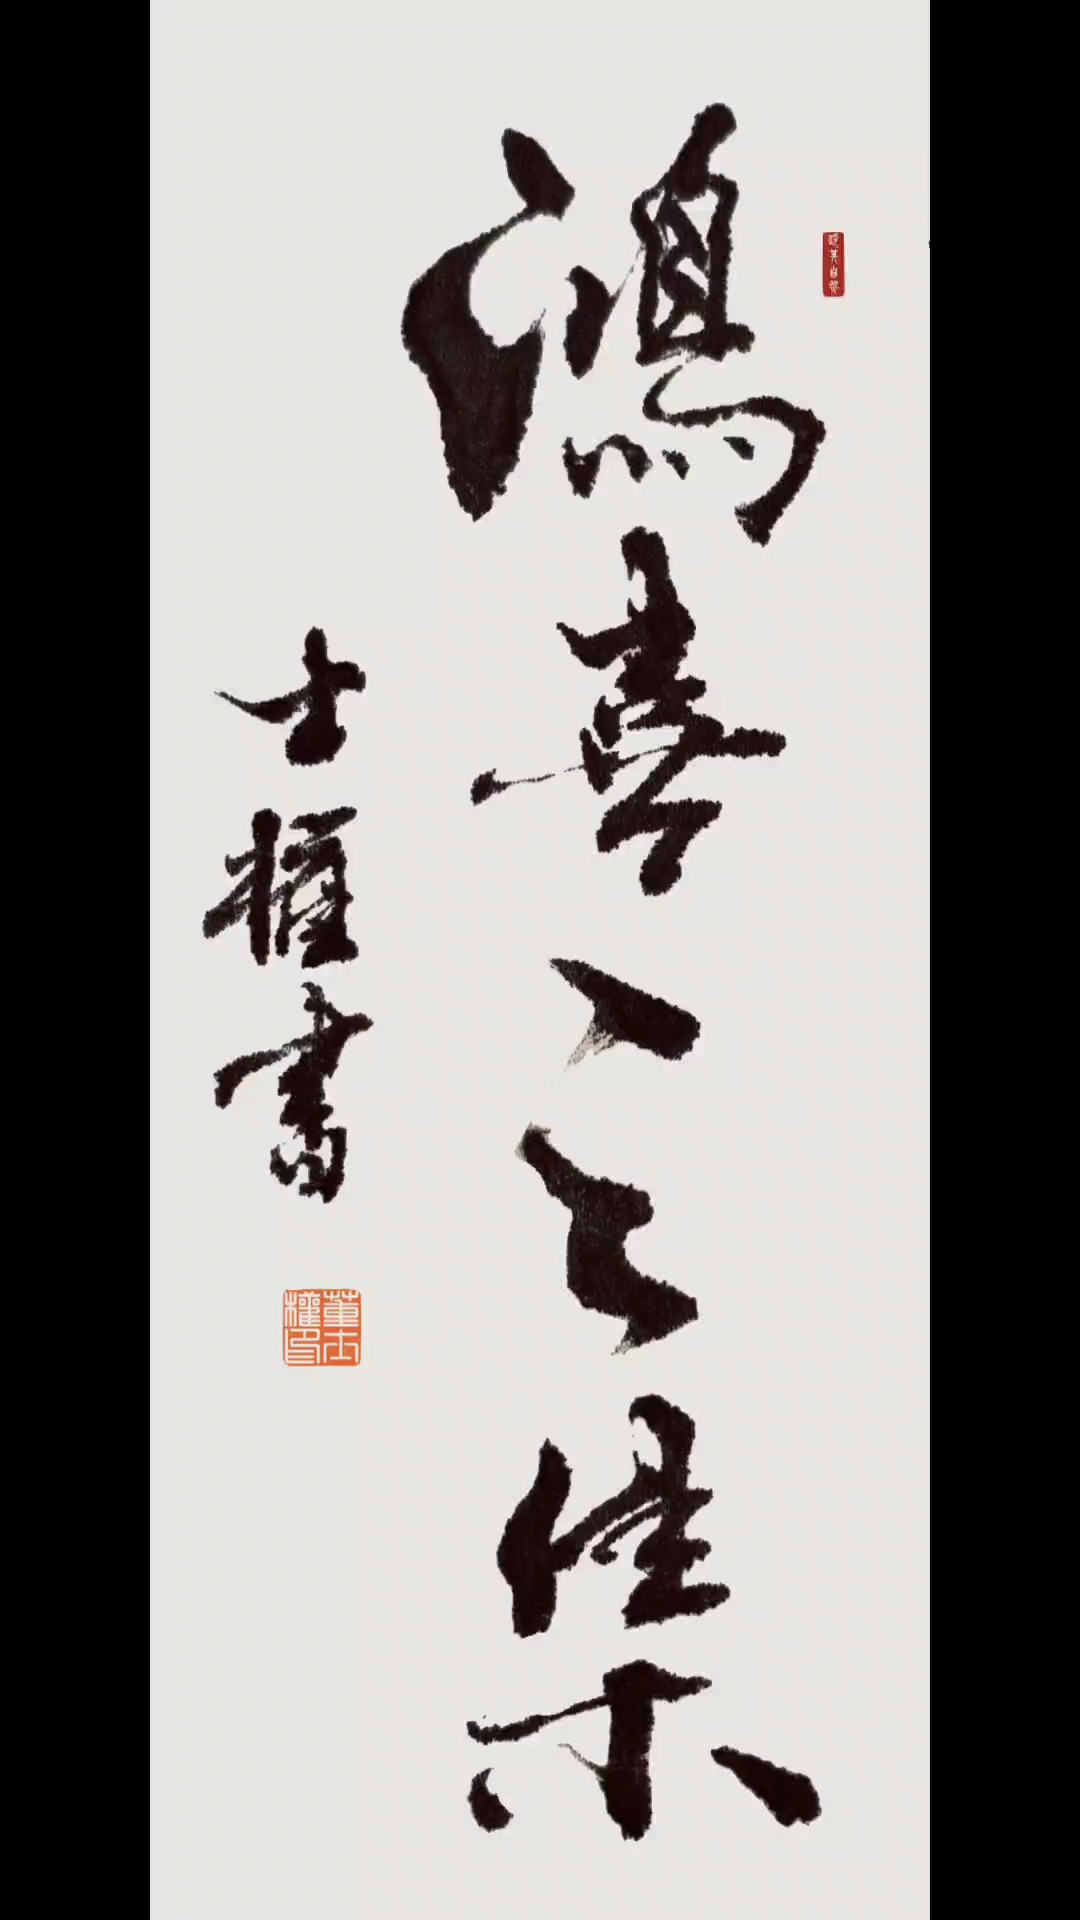 鴻喜之集
士權書
董士權印